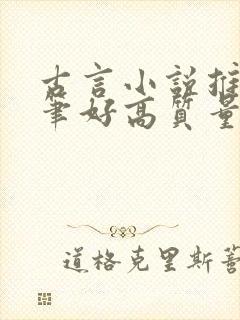 古言小说推
笔好高质量
道格克里斯蒂